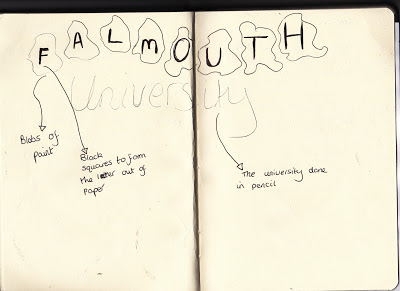 FALMOUTH
University
Blobs of
paint
Black
squares to form
the letter out of
paper
The university done
in pencil